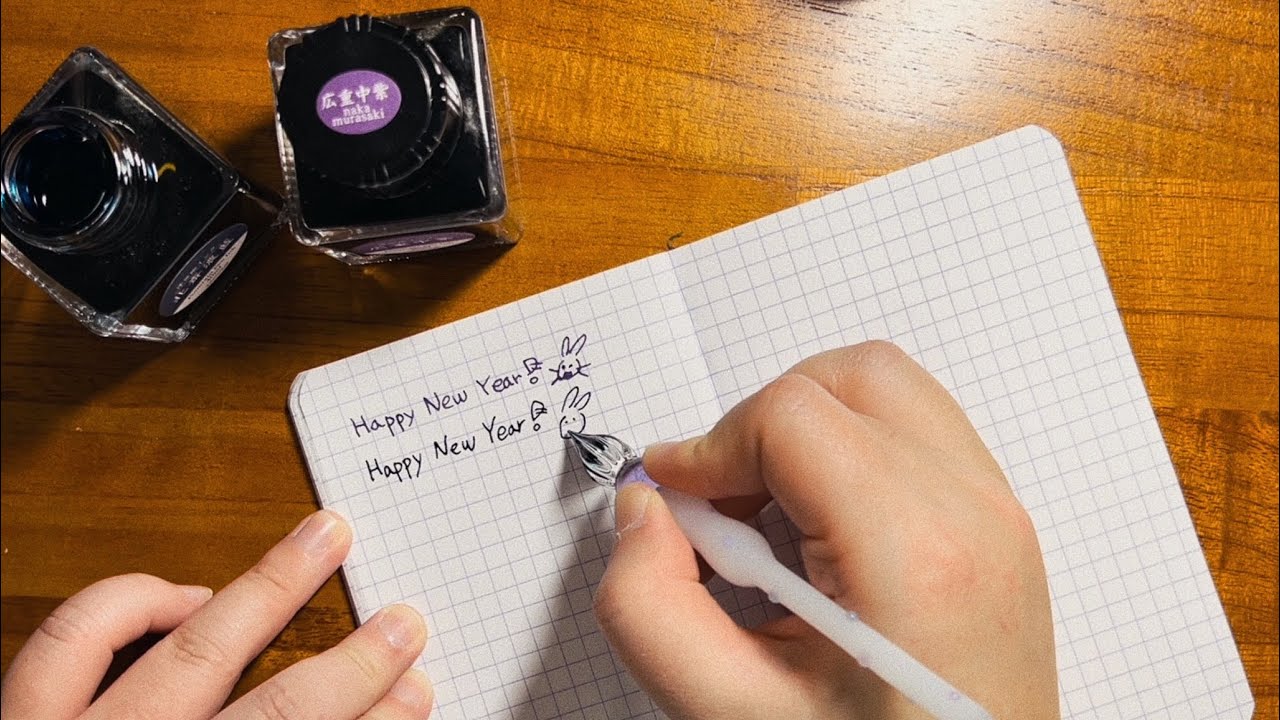 広重中紫
naka
murasaki
Happy New Year!
Happy New Year!